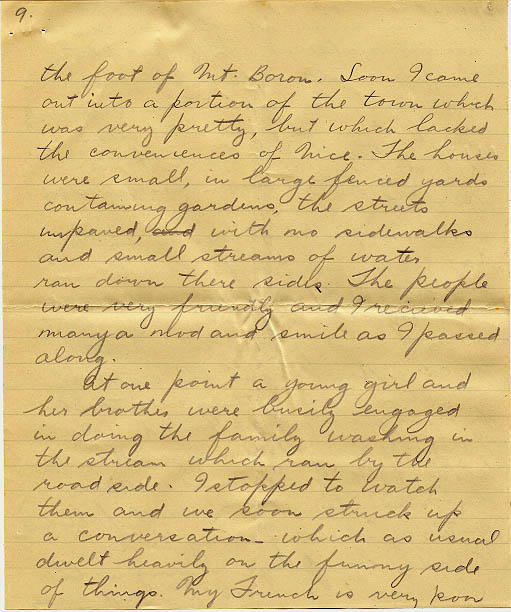 9.
the foot of Mt. Boron. Soon I came
out into a portion of the town which
was very pretty, but which lacked
the conveniences of Nice. The houses
were small, in large fenced yards
containing gardens, the streets
unpaved, and with no sidewalks
and small streams of water
ran down there sides. The people
were very friendly and I recieved
many a nod and smile as I passed
along.
At one point a young girl and
her brother were busily engaged
in doing the family washing in
the stream which ran by the
roadside. I stopped to watch
them and we soon struck up
a conversation - which as usual
dwelt heavily on the funny side
of things. My French is very poor